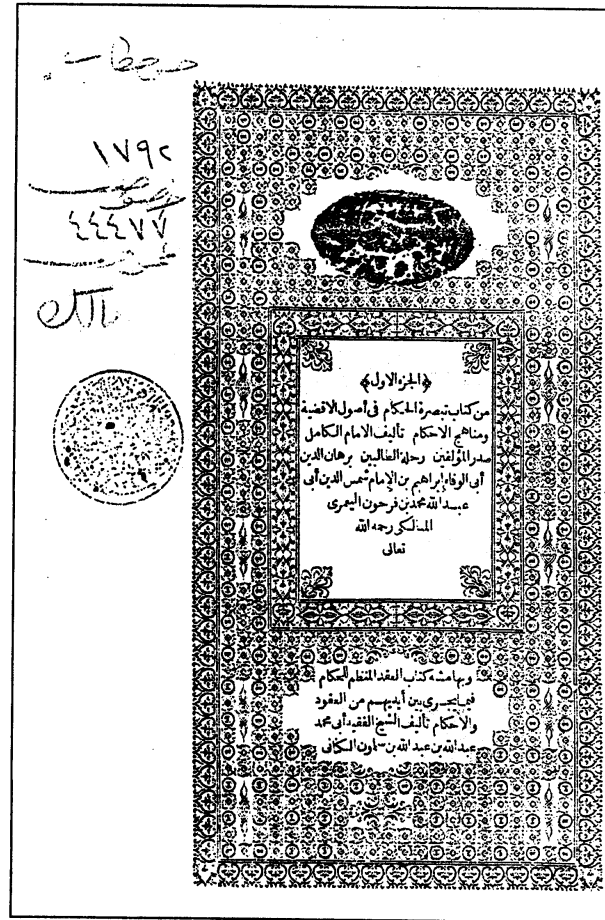 ١٧٩٢
٤٤٤٧٧
﴿الجزء الاول﴾
من كتاب تبصرة الحكام فى أصول الاقضية
ومناهج الاحكام تأليف الامام الكامل
صدر المؤلفين وحلة الطالبين برهان الدين
أبى الوفاء ابراهيم بن الامام شمس الدين أبى
عبد الله محمد بن فرحون اليعمرى
المالكى رحمه الله
تعالى
وبهامشه كتاب العقد المنظم للحكام
فيما يجرى بين أيديهم من العقود
والاحكام تأليف الشيخ الفقيه أبى محمد
عبد الله بن عبد الله بن سلمون الكنانى